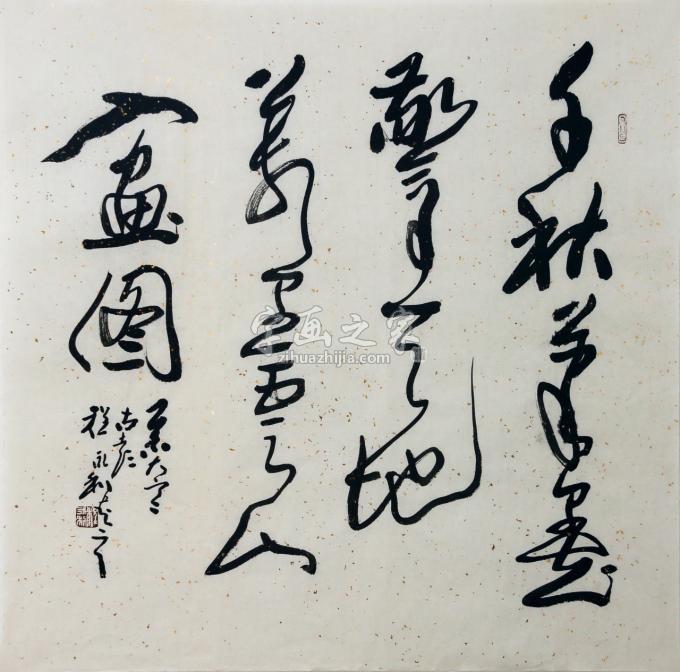 千秋筆墨
驚天地
萬里雲山
入畫图
程永利
字画之家
zihuazhijia.com